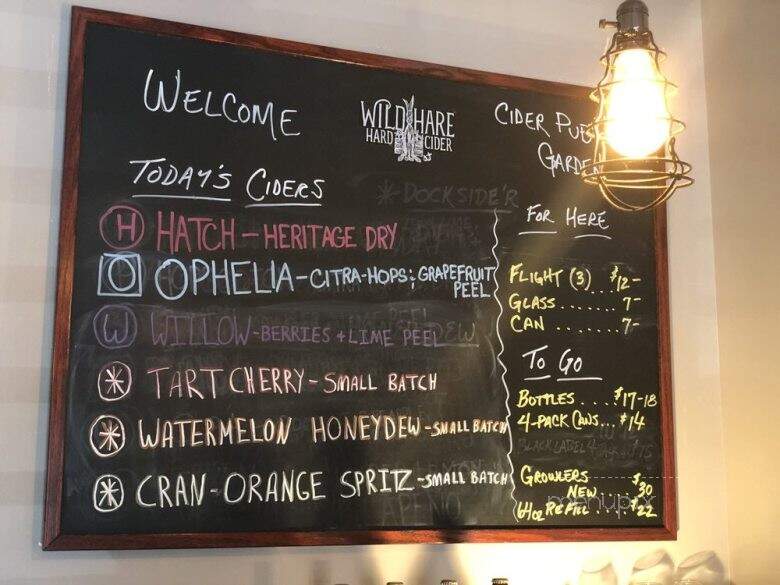 WELCOME
WILD HARE
HARD CIDER
CIDER PUB
GARDEN
TODAY'S CIDERS
DOCKSIDE'R
H HATCH - HERITAGE DRY
O OPHELIA - CITRA-HOPS; GRAPEFRUIT
PEEL
W WILLOW - BERRIES + LIME PEEL
* TART CHERRY - SMALL BATCH
* WATERMELON HONEYDEW - SMALL BATCH
* CRAN-ORANGE SPRITZ - SMALL BATCH
FOR HERE
FLIGHT (3) $12-
GLASS....... 7-
CAN ....... 7-
TO GO
BOTTLES.... $17-18
4-PACK CANS... $14
BLACK LABEL 4 $15
GROWLERS
NEW $30
64oz REFILL.. $22
menupix